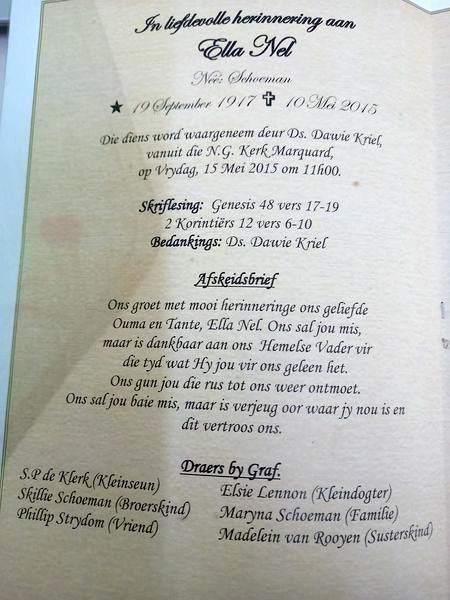 In liefdevolle herinnering aan
Ella Nel
Neé: Schoeman
★ 19 September 1917 ✝ 10 Mei 2015
Die diens word waargeneem deur Ds. Dawie Kriel,
vanuit die N.G. Kerk Marquard,
op Vrydag, 15 Mei 2015 om 11h00.
Skriflesing: Genesis 48 vers 17-19
2 Korintiërs 12 vers 6-10
Bedankings: Ds. Dawie Kriel
Afskeidsbrief
Ons groet met mooi herinneringe ons geliefde
Ouma en Tante, Ella Nel. Ons sal jou mis,
maar is dankbaar aan ons Hemelse Vader vir
die tyd wat Hy jou vir ons geleen het.
Ons gun jou die rus tot ons weer ontmoet.
Ons sal jou baie mis, maar is verjeug oor waar jy nou is en
dit vertroos ons.
Draers by Graf.
S.P de Klerk (Kleinseun)
Skillie Schoeman (Broerskind)
Phillip Strydom (Vriend)
Elsie Lennon (Kleindogter)
Maryna Schoeman (Familie)
Madelein van Rooyen (Susterskind)